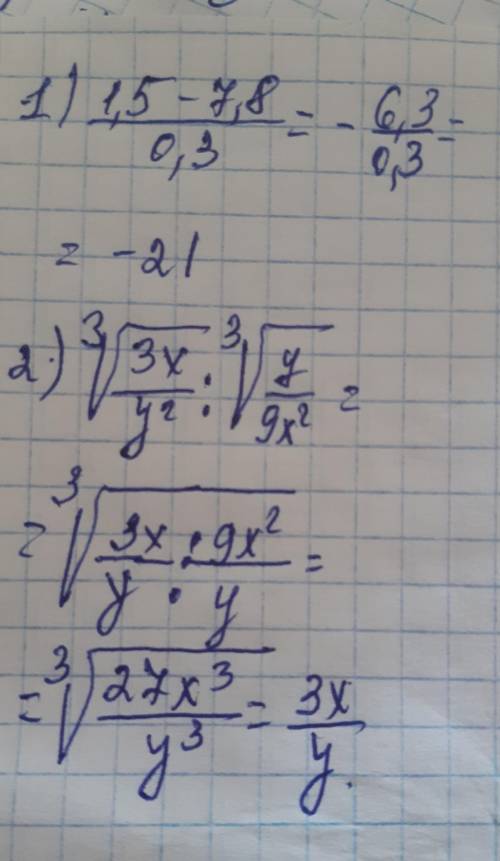 1) (1,5 - 7,8)/0,3 = - 6,3/0,3 =
= -21
2.) ∛(3x/y²) : ∛(y/9x²) =
= ∛((3x · 9x²)/(y · y)) =
= ∛(27x³/y³) = 3x/y.